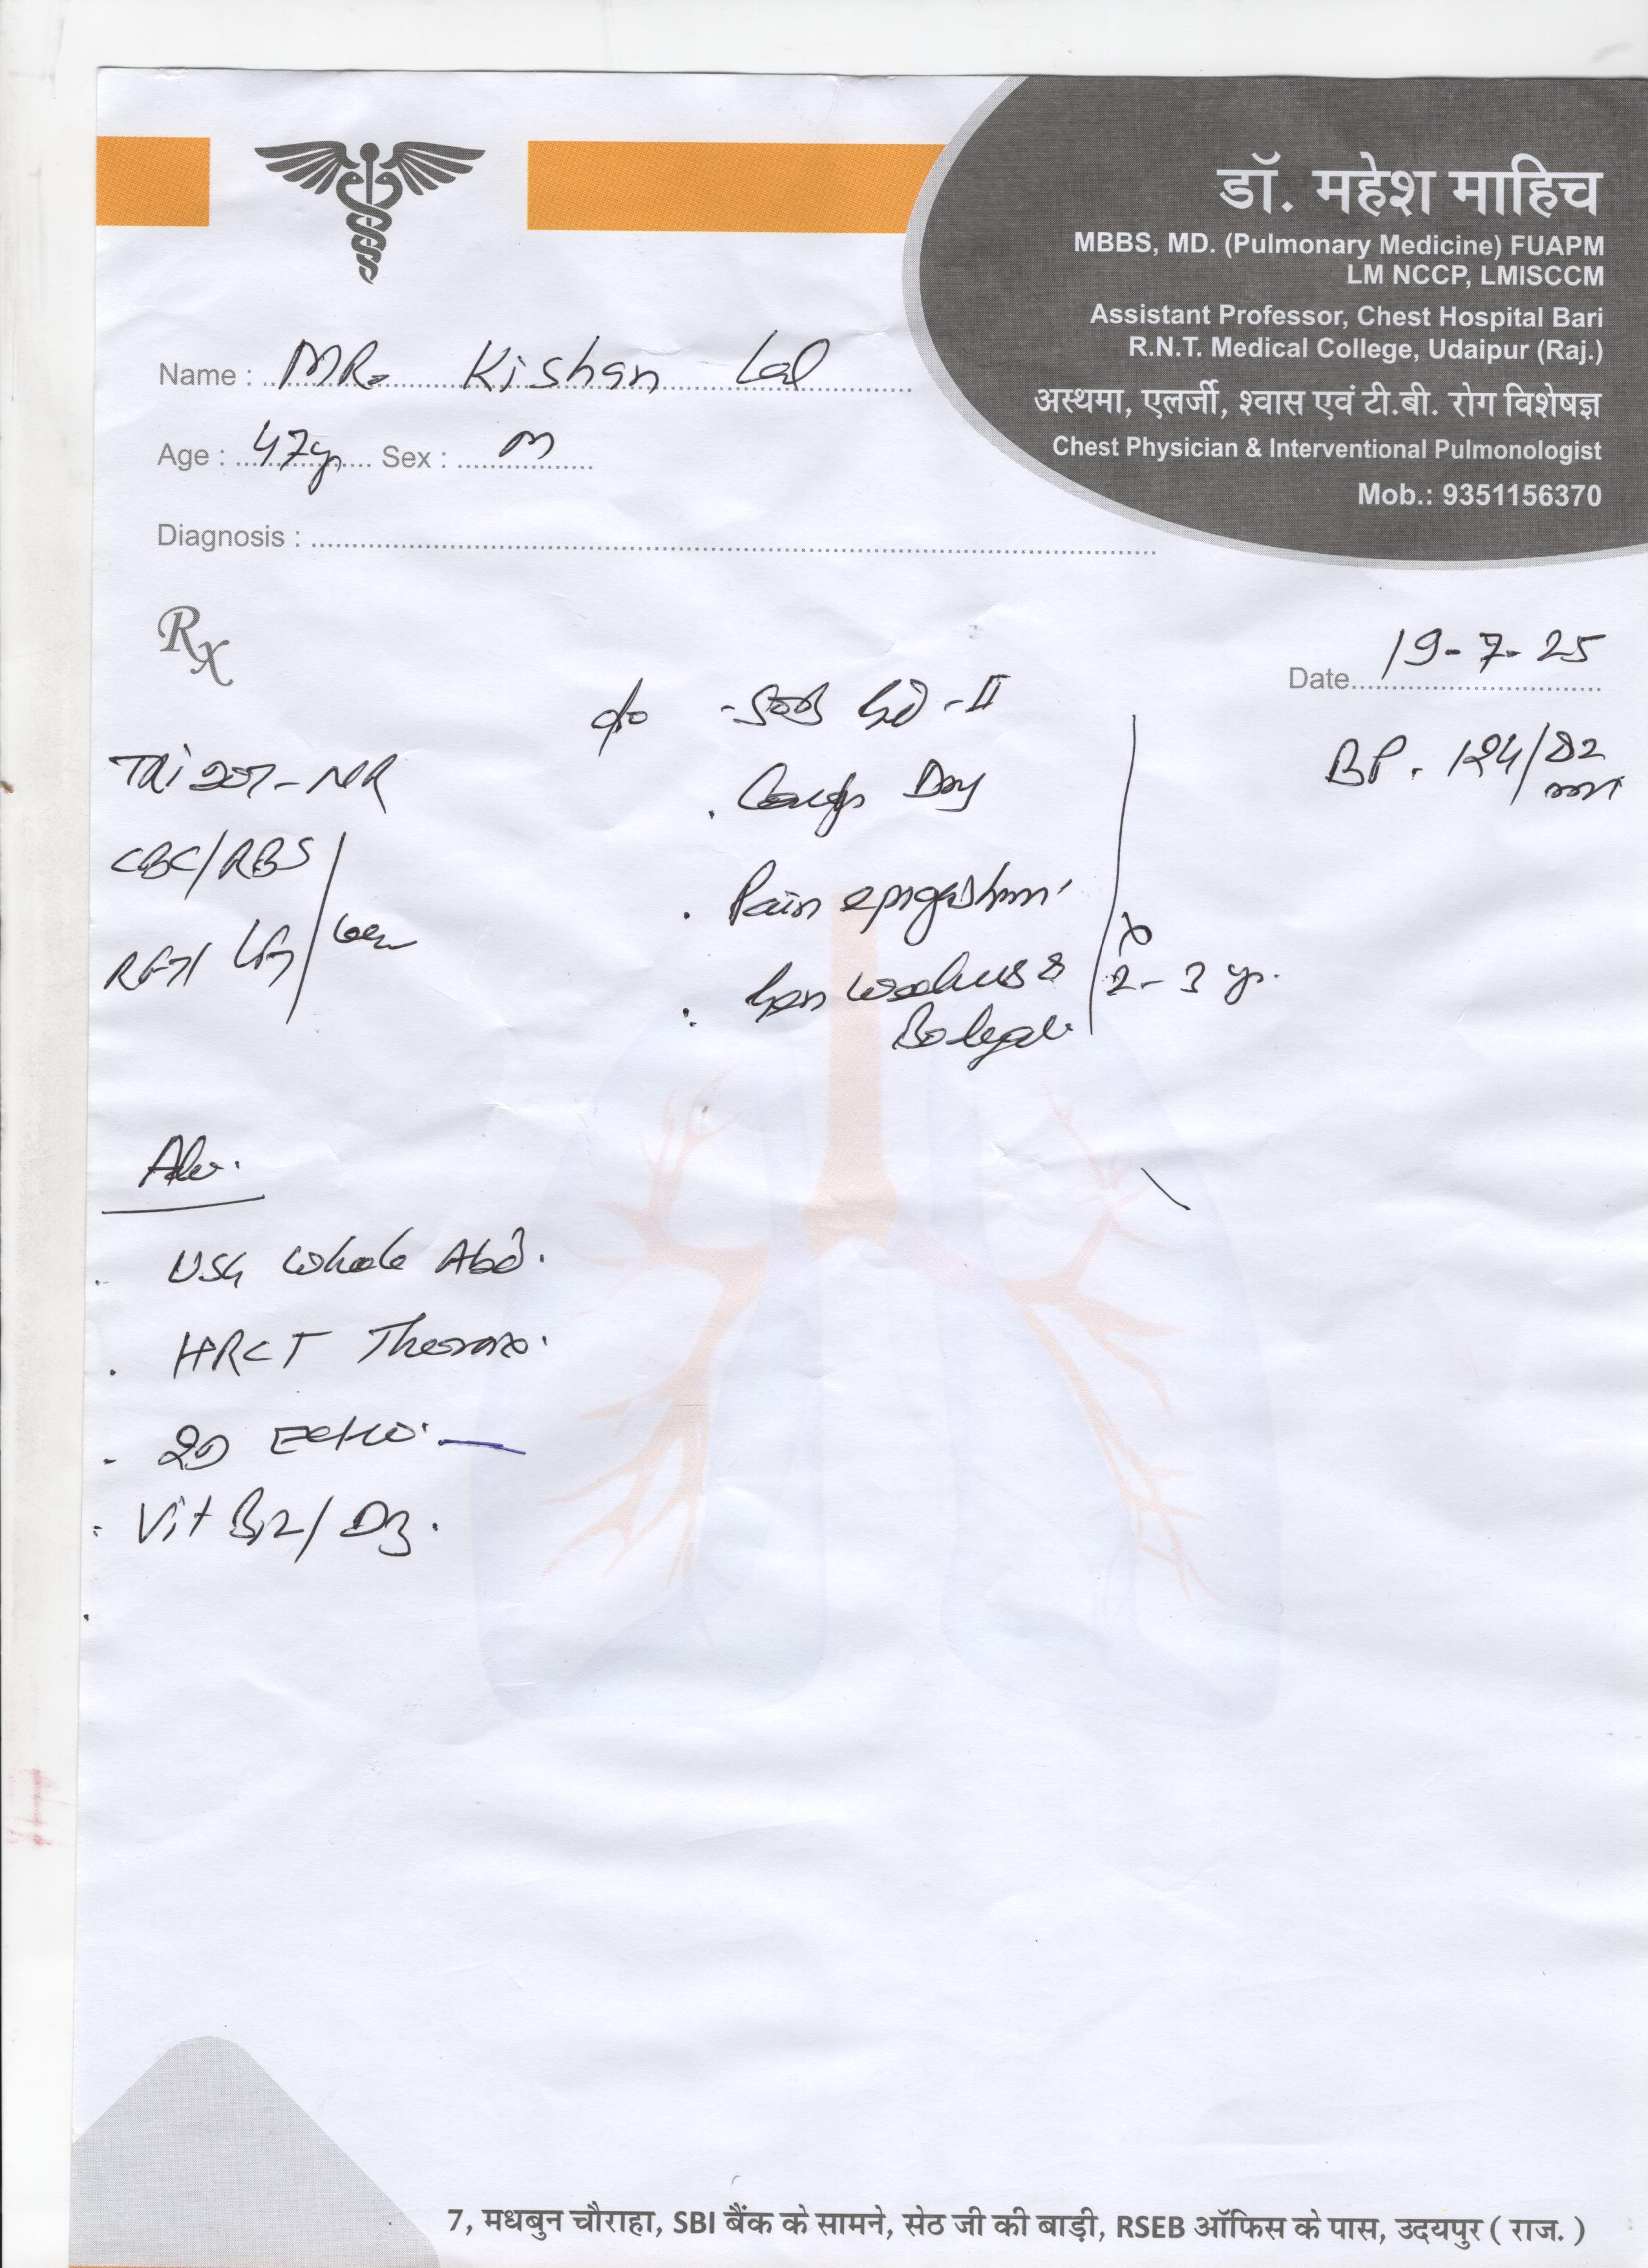 डॉ. महेश माहिच
MBBS, MD. (Pulmonary Medicine) FUAPM
LM NCCP, LMISCCM
Assistant Professor, Chest Hospital Bari
R.N.T. Medical College, Udaipur (Raj.)
अस्थमा, एलर्जी, श्वास एवं टी.बी. रोग विशेषज्ञ
Chest Physician & Interventional Pulmonologist
Mob.: 9351156370
Name : MR. Kishan Lal
Age : 47yr Sex : M
Diagnosis :
Rx
Date 19-7-25
BP. 124/82
- SOB - II
. Cough Dry
. Pain epigastrium
Gen weakness &
2-3 yr.
NR
CBC/RBS
RFT/LFT
Adv.
. USG Whole Abd.
. HRCT Thorax.
- 2D ECHO.
Vit B12/D3.
7, मधबुन चौराहा, SBI बैंक के सामने, सेठ जी की बाड़ी, RSEB ऑफिस के पास, उदयपुर ( राज. )